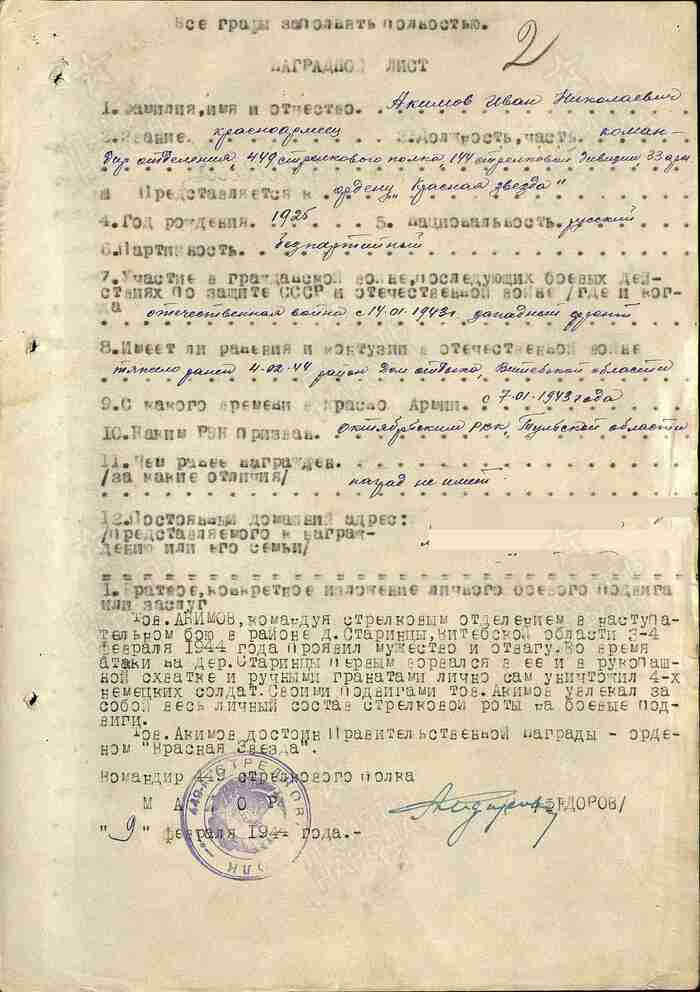 Все графы заполнять полностью.
2
НАГРАДНОЙ ЛИСТ
1. Фамилия, имя и отчество. Акимов Иван Николаевич
2. Звание. красноармеец 3. Должность, часть. коман-
дир отделения, 449 стрелкового полка, 144 стрелковой дивизии, 33 арм
Представляется к ордену „Красная звезда"
4. Год рождения. 1925 5. Национальность. русский
6. Партийность. безпартийный
7. Участие в гражданской войне, последующих боевых дей-
ствиях по защите СССР и отечественной войне /где и ког-
да отечественная война с 14.01.1943г западный фронт
8. Имеет ли ранения и контузии в отечественной войне
тяжело ранен 4-02-44 район Витебской области
9. С какого времени в Красно. Армии. с 7-01-1943 года
10. Каким РВК призван. октябрьским рвк, Тульской области
11. Чем ранее награжден.
/за какие отличия/ наград не имеет
12. Постоянный домашний адрес:
/представляемого к награж-
дению или его семьи/
1. Краткое, конкретное изложение личного боевого подвига
или заслуг
Тов. АКИМОВ, командуя стрелковым отделением в наступа-
тельном бою в районе д. Старинцы, Витебской области 3-4
февраля 1944 года проявил мужество и отвагу. Во время
атаки на дер. Старинцы первым ворвался в ее и в рукопаш-
ной схватке и ручными гранатами лично сам уничтожил 4-х
немецких солдат. Своими подвигами тов. Акимов увлекал за
собой весь личный состав стрелковой роты на боевые под-
виги.
Тов. Акимов достоин Правительственной награды - орде-
ном "Красная Звезда".
Командир 449 стрелкового полка
МАЙОР /ФЕДОРОВ/
"9" февраля 1944 года.-